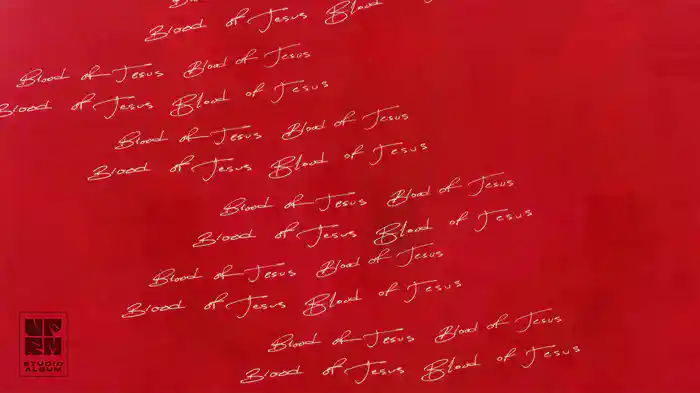 Blood of Jesus Blood
Blood of Jesus Blood of Jesus
Blood of Jesus Blood of Jesus
Blood of Jesus Blood of Jesus
Blood of Jesus Blood of Jesus
Blood of Jesus Blood of Jesus
Blood of Jesus Blood of Jesus
Blood of Jesus Blood of Jesus
Blood of Jesus Blood of Jesus
Blood of Jesus Blood of Jesus
Blood of Jesus Blood of Jesus
OPEN
STUDIO
ALBUM